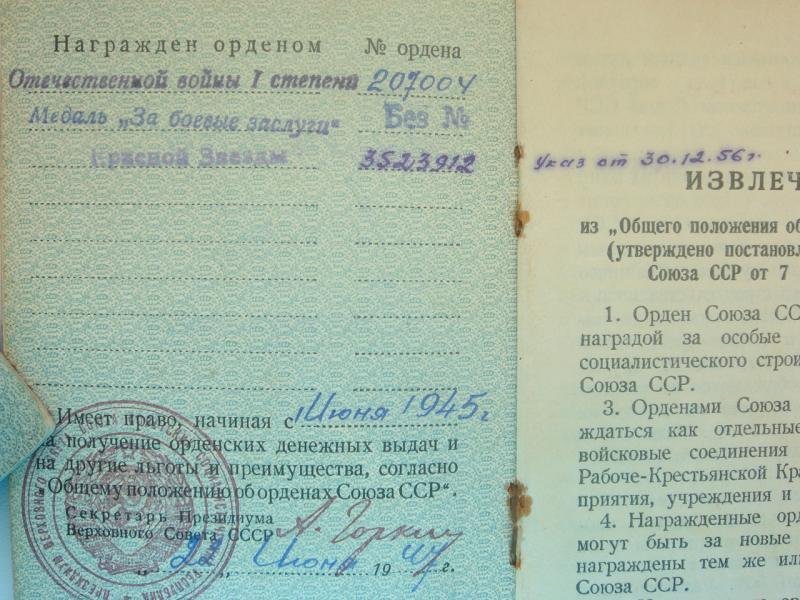 Награжден орденом № ордена
Отечественной войны I степени 207004
Медаль „За боевые заслуги“ Без №
Красной Звезды 3523912
Указ от 30.12.56г.
Имеет право, начиная с 1 Июня 1945 г
на получение орденских денежных выдач и
на другие льготы и преимущества, согласно
„Общему положению об орденах Союза ССР“.
Секретарь Президиума
Верховного Совета СССР А. Горкин
22 Июня 1947 г.
ИЗВЛЕЧ
из „Общего положения об
(утверждено постановл
Союза ССР от 7
1. Орден Союза СС
наградой за особые
социалистического строи
Союза ССР.
3. Орденами Союза
ждаться как отдельные
войсковые соединения
Рабоче-Крестьянской Кра
приятия, учреждения и
4. Награжденные орд
могут быть за новые
награждены тем же или
Союза ССР.